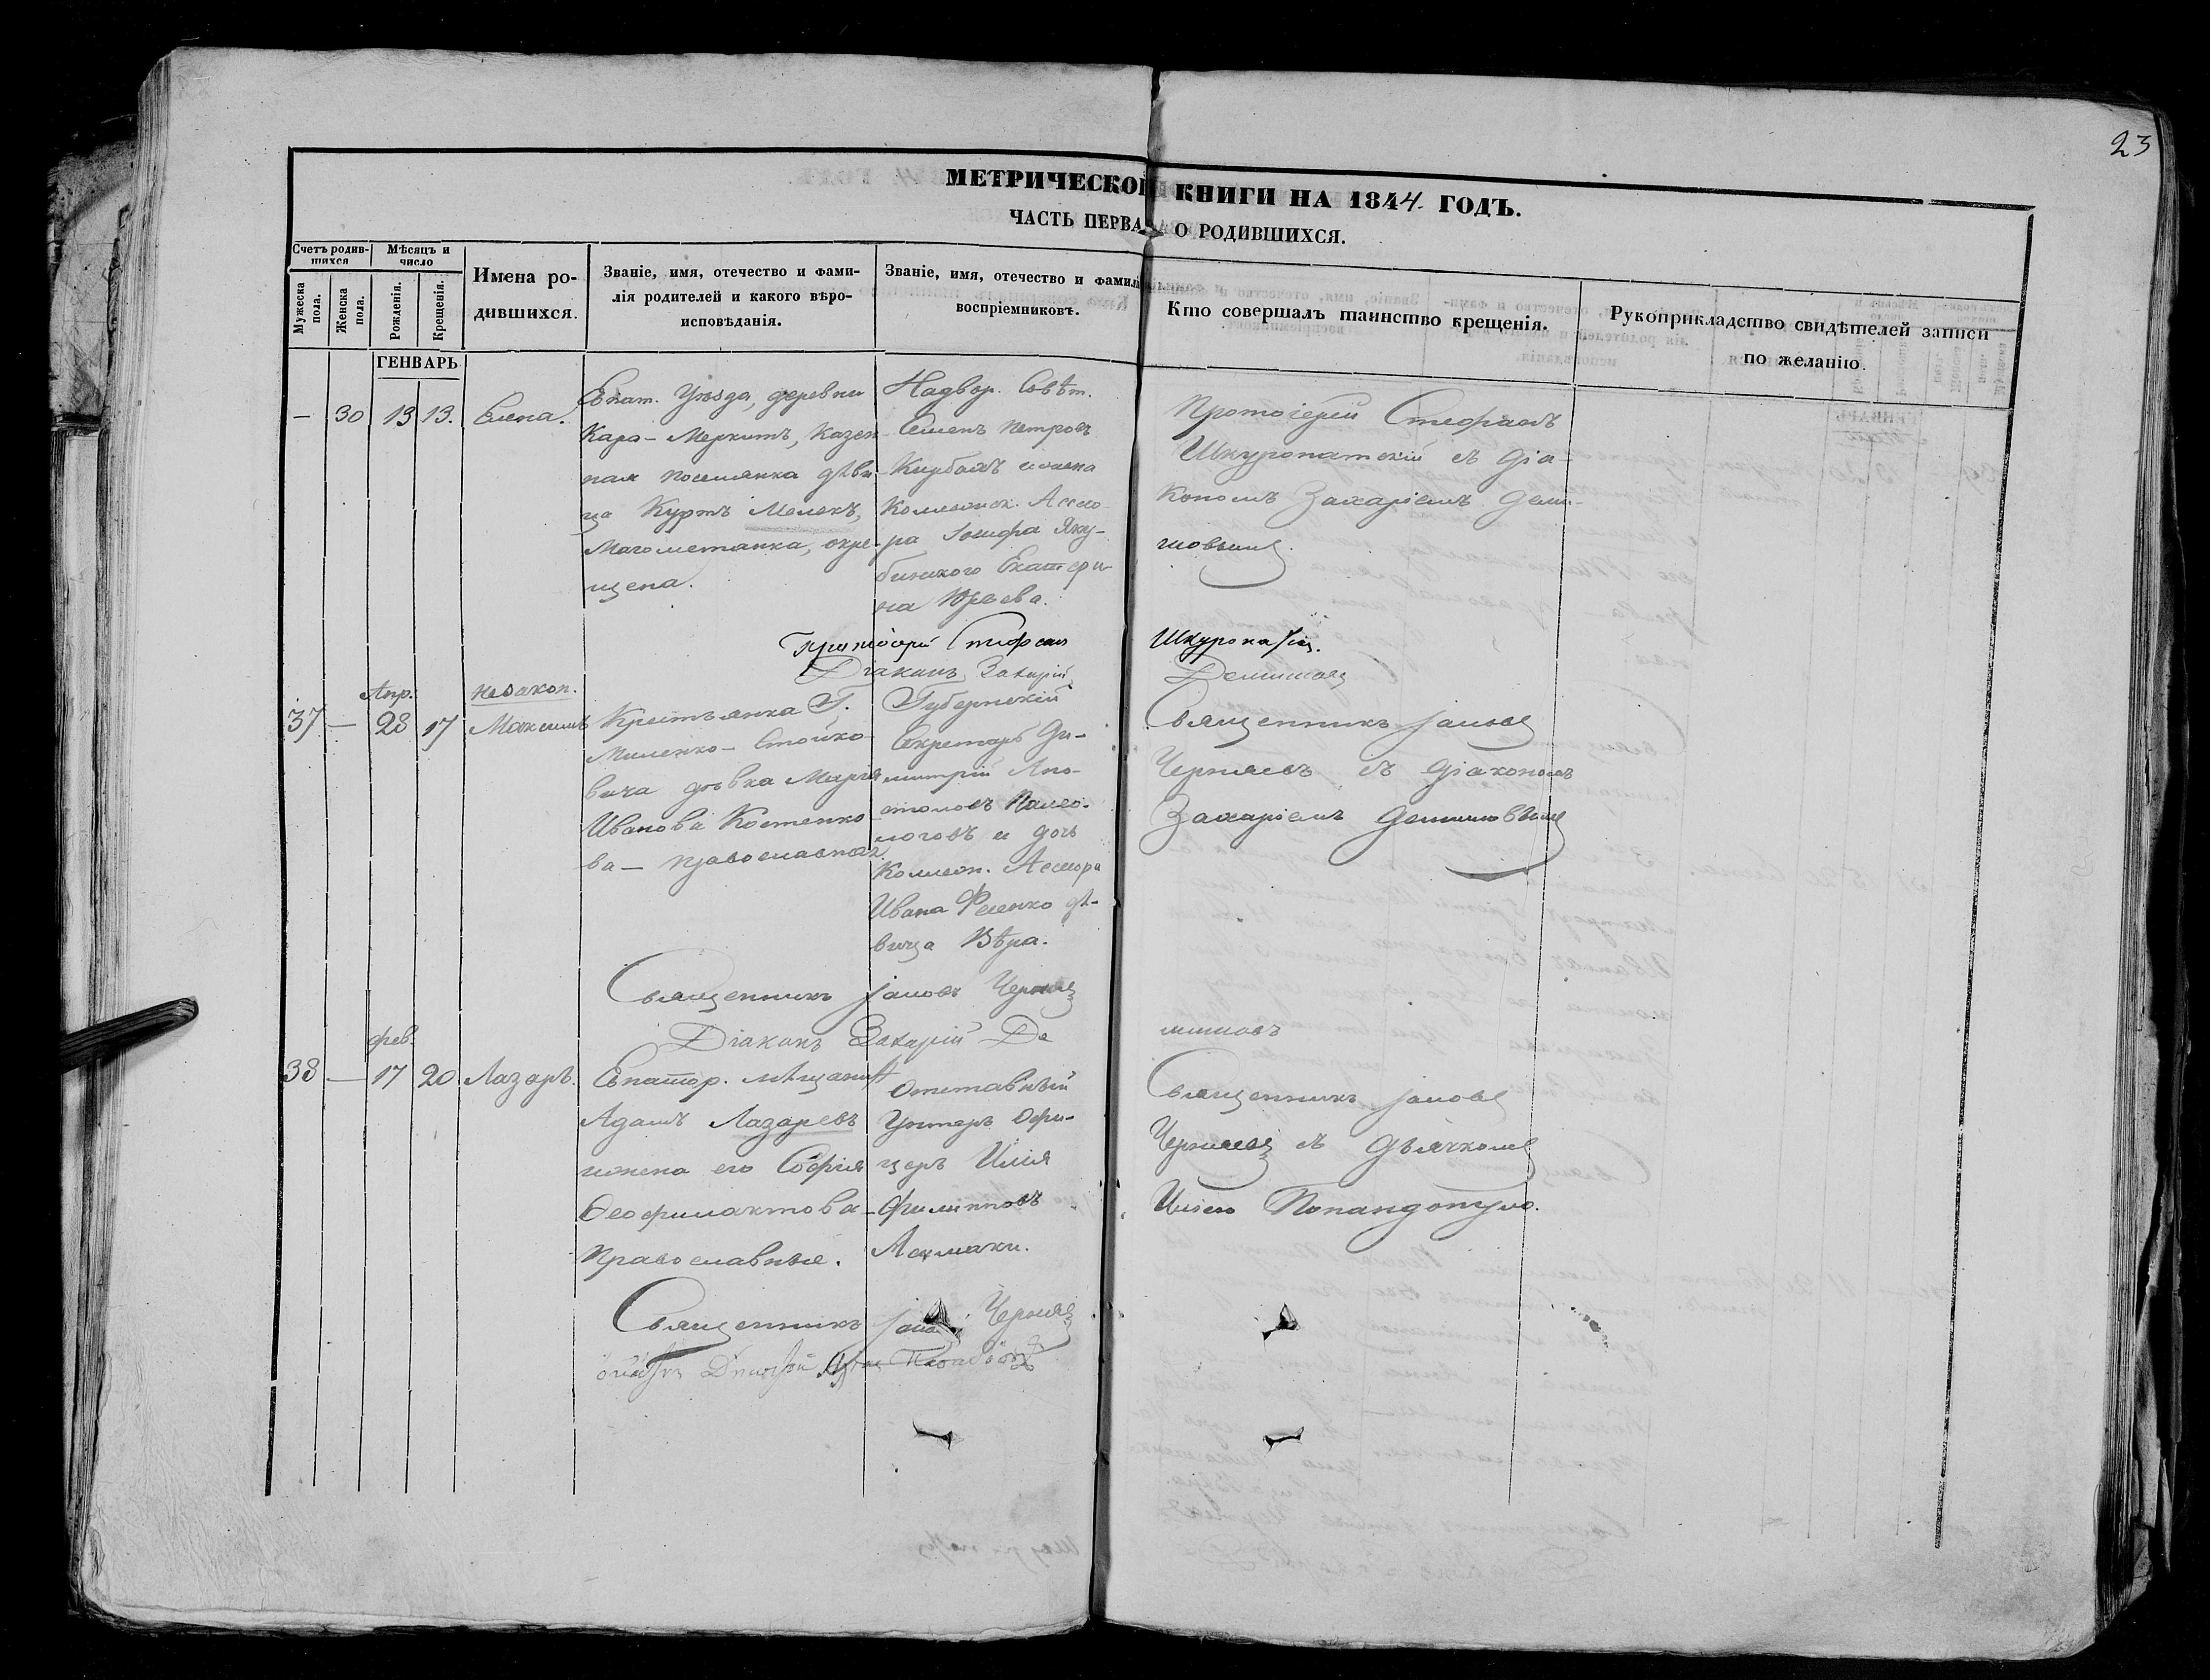 23
МЕТРИЧЕСКОЙ КНИГИ НА 1844 ГОДЪ.
ЧАСТЬ ПЕРВАЯ О РОДИВШИХСЯ.
Счетъ родив-
шихся
Мужеска
пола.
Женска
пола.
Мѣсяцъ и
число
Рожденія.
Крещенія.
Имена ро-
дившихся.
Званіе, имя, отечество и фами-
лія родителей и какого вѣро-
исповѣданія.
Званіе, имя, отечество и фамилія
воспріемниковъ.
Кто совершалъ таинство крещенія.
Рукоприкладство свидѣтелей записи
по желанію.
ГЕНВАРЬ
— 30 13 13. Елена.
Евпат. Уѣзда, деревни
Кара-Меркитъ, Казен-
ная поселянка дѣви-
ца Куртъ Мелекъ,
Магометанка, окре-
щена.
Надвор. Совѣт.
Семенъ Петровъ
Курбатъ и жена
Коллежск. Ассесо-
ра Іосифа Яку-
бинского Екатери-
на Юрьева.
Протоіерей Стефанъ
Шкуропатскій съ Діа-
кономъ Захаріемъ Деми-
шовымъ.
Протоіерей Стефан Шкуропатск.
Діаконъ Захарій Демишовъ
Апр. незакон.
37 — 28 17 Максимъ
Крестьянка Г.
Миленко-Стойко-
вича дѣвка Марія
Иванова Костенко-
ва — православная
Губернскій
Секретарь Ди-
митрій Апо-
столовъ Палео-
логовъ и дочь
Коллеж. Ассесора
Ивана Фесенко дѣ-
вица Вѣра.
Священникъ Іаковъ
Чернявъ съ Діакономъ
Захаріемъ Демишовымъ
Священникъ Іаковъ
Діаконъ Захарій Де мишовъ
фев.
38 — 17 20 Лазарь.
Евпатор. мѣщанинъ
Адамъ Лазаревъ
и жена его Софія
Ѳеофилактова —
Православные.
Отставный
Унтеръ Офи-
церъ Илія
Филипповъ
Священникъ Іаковъ
съ Дьячкомъ
Иліею Попандопуло.
Священникъ Іаковъ